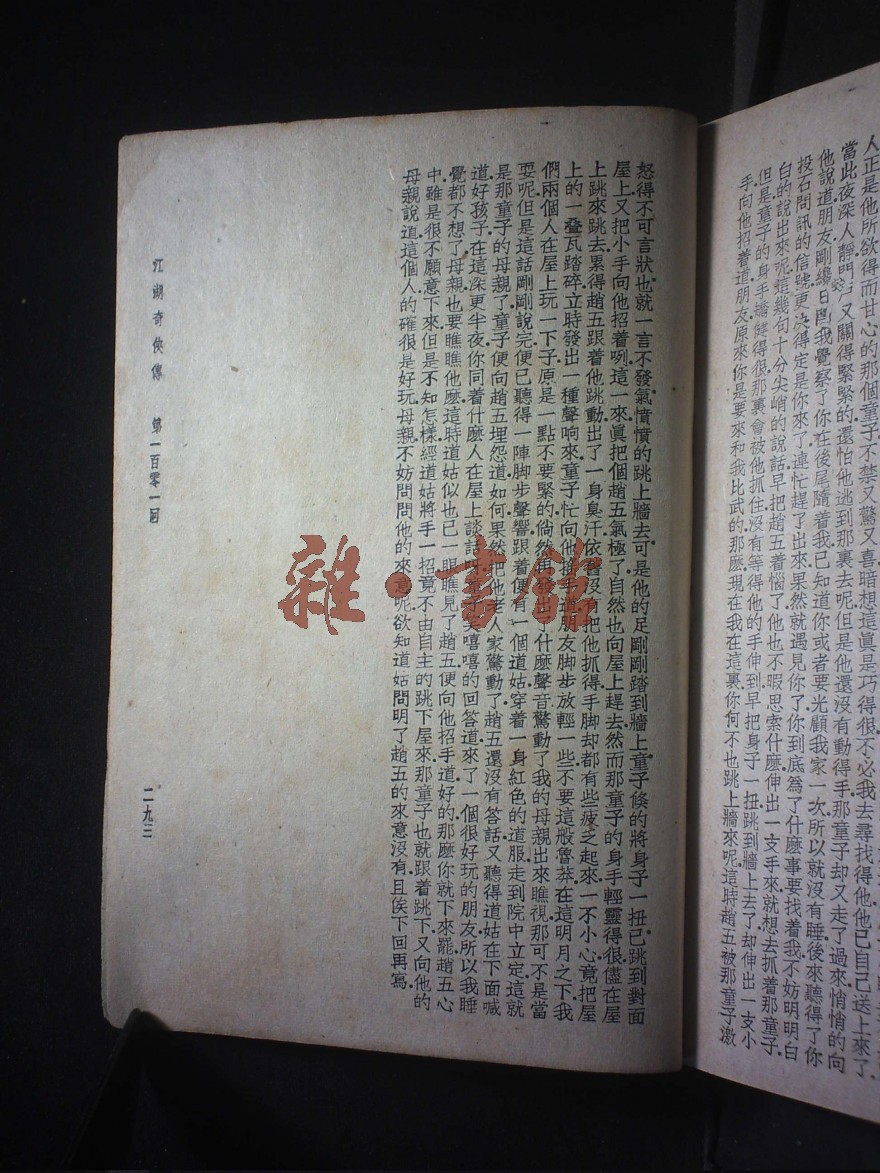 人正是他所欲得而甘心的那個童子不禁又驚又喜暗想這眞是巧得很不必我去尋找得他他已自己送上來了
當此夜深人靜門戶又關得緊緊的還怕他逃到那裏去呢但是他還沒有動得手那童子却又走了過來悄悄的向
他說道朋友剛纔日間我覺察了你在後尾隨着我已知道你或者要光顧我家一次所以就沒有睡後來聽得了你
投石問訊的信號更決得定是你來了連忙趕了出來果然就遇見你了你到底爲了什麼事要找着我不妨明明白
白的說出來呢這幾句十分尖峭的說話早把趙五着惱了他也不暇思索什麼伸出一支手來就想去抓着那童子
但是童子的身手矯健得很那裏會被他抓住沒有等得他的手伸到早把身子一扭跳到牆上去了却伸出一支小
手向他招着道朋友原來你是要來和我比武的那麼現在我在這裏你何不也跳上牆來呢這時趙五被那童子激
怒得不可言狀也就一言不發氣憤憤的跳上牆去可是他的足剛剛踏到牆上童子倏的將身子一扭已跳到對面
屋上又把小手向他招着咧這一來眞把個趙五氣極了自然也向屋上趕去然而那童子的身手輕靈得很儘在屋
上跳來跳去累得趙五跟着他跳動出了一身臭汗依舊沒把他抓得手脚却都有些疲乏起來一不小心竟把屋
上的一叠瓦踏碎立時發出一種聲响來童子忙向他搖手道朋友脚步放輕一些不要這般魯莽在這明月之下我
們兩個人在屋上玩一下子原是一點不要緊的倘然再發出了什麼聲音驚動了我的母親出來瞧視那可不是當
耍呢但是這話剛剛說完便已聽得一陣脚步聲響跟着便有一個道姑穿着一身紅色的道服走到院中立定這就
是那童子的母親了童子便向趙五埋怨道如何果然把他老人家驚動了趙五還沒有答話又聽得道姑在下面喊
道好孩子在這深更半夜你同着什麼人在屋上談話呀童子笑嘻嘻的回答道來了一個很好玩的朋友所以我睡
覺都不想了母親也要瞧瞧他麼這時道姑似也已一眼瞧見了趙五便向他招手道好的那麼你就下來罷趙五心
中雖是很不願意下來但是不知怎樣經道姑將手一招竟不由自主的跳下屋來那童子也就跟着跳下又向他的
母親說道這個人的確很是好玩母親不妨問問他的來意呢欲知道姑問明了趙五的來意沒有且俟下回再寫
江湖奇俠傳 第一百零一回 二九三
雜·書館